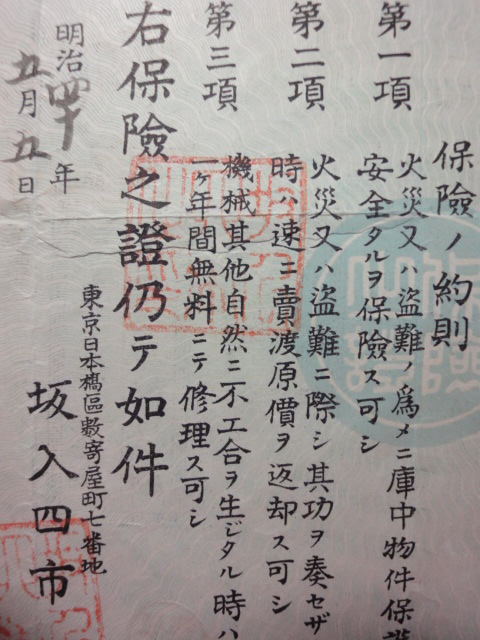 保險ノ約則
第一項 火災又ハ盜難ノ爲メニ庫中物件保護
安全タルヲ保險ス可シ
第二項 火災又ハ盜難ニ際シ其功ヲ奏セザ
時ハ速ニ賣渡原價ヲ返却ス可シ
第三項 機械其他自然ニ不工合ヲ生ジタル時ハ
一ヶ年間無料ニテ修理ス可シ
右保險之證仍テ如件
明治四十年
五月五日
東京日本橋區數寄屋町七番地
坂入四市